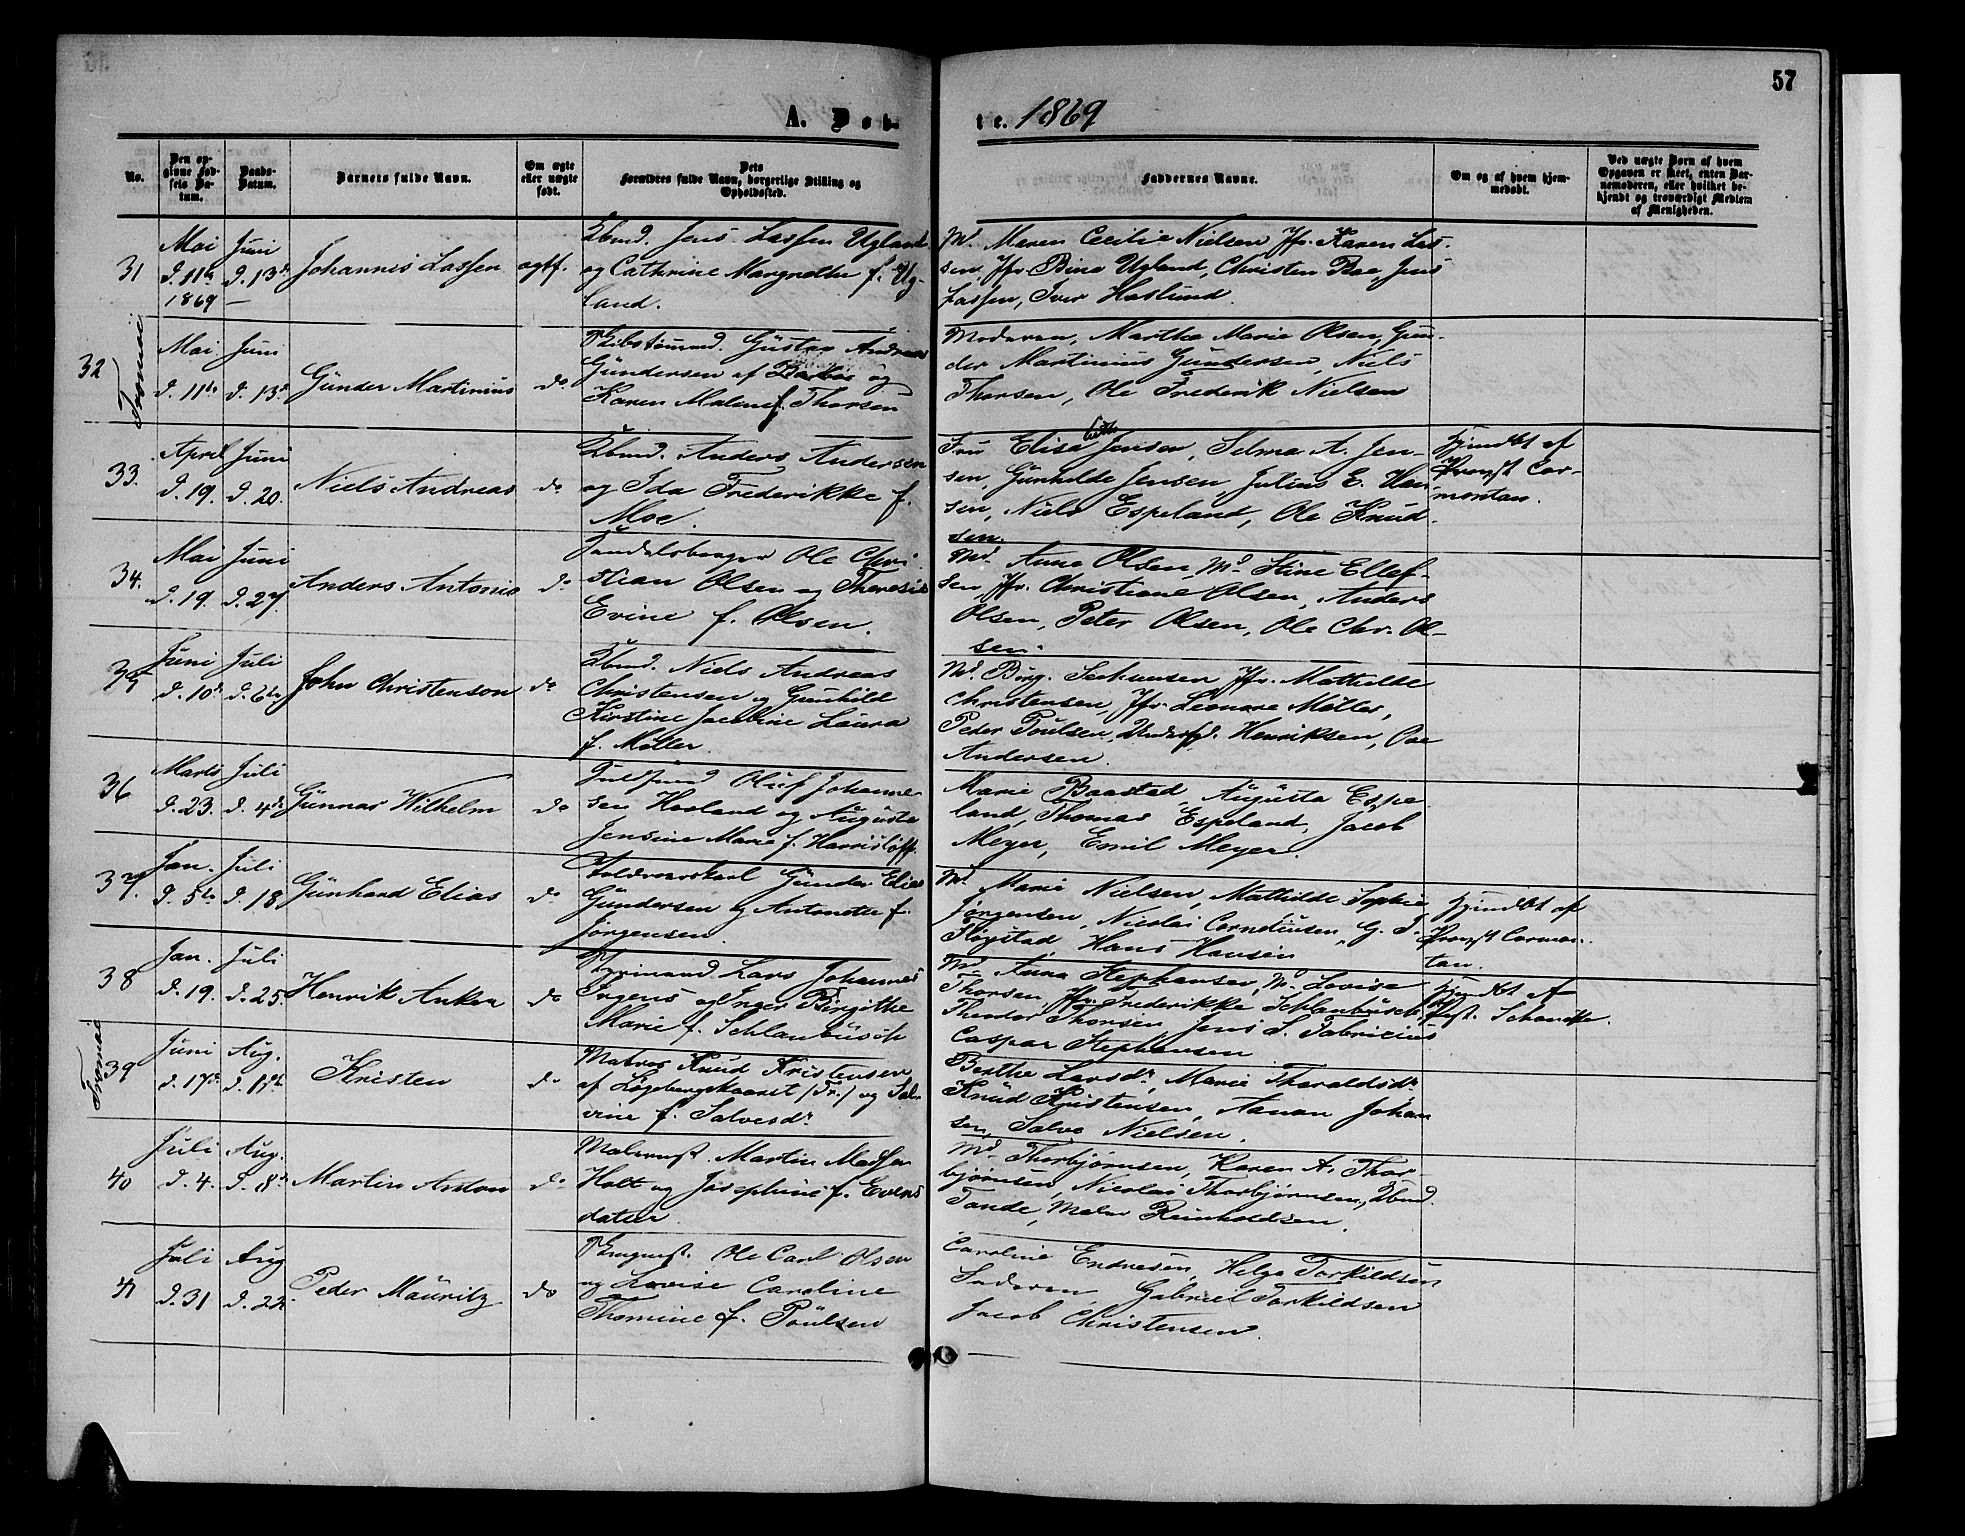 57
A. Døb-
te. 1869
No.
Den op-
givne Fød-
sels Da-
tum.
Daabs-
Datum.
Barnets fulde Navn.
Om ægte
eller uægte
født.
Dets
Forældres fulde Navn, borgerlige Stilling og
Opholdssted.
Faddernes Navne.
Om og af hvem hjem-
medøbt.
Ved uægte Børn af hvem
Opgaven er skeet, enten Bar-
nemoderen, eller hvilket be-
kjendt og troværdigt Medlem
af Menigheden.
31
Mai
d. 11te
1869
Juni
d. 13de
Johannes Lassen
ægtf.
Kbmd. Jens Lassen Ugland
og Cathrine Margrethe f. Ug-
land.
Md. Maren Cecilie Nielsen Jfr. Karen Las-
sen, Jfr. Bina Ugland, Christen Boe, Jens
Lassen, Iver Haslund.
32
Tromø
Mai
d. 11te
Juni
d. 13d
Günder Martinius
do
Gustav Andreas
Gundersen af og
Karen Malene f. Thorsen
Moderen, Marthe Marie Olsen, Gun-
der Martinius Gundersen, Niels
Thorsen, Ole Frederik Nielsen
33.
April
d. 19.
Juni
d. 20.
Niels Andreas
do
Kbmd. Anders Andersen
og Ida Frederikke f.
Moe.
Fru Elisabeth Jensen, Selma A. Jen-
sen, Gunhilde Jensen, Julius E. Han-
sen, Niels Espeland, Ole Knud-
sen.
Hjemdbt af
Provst Cor-
montan.
34.
Mai
d. 19.
Juni
d. 27.
Anders Antonio
do
Handelsborger Ole Chri-
stian Olsen og Theresie
Evine f. Olsen.
Md. Anne Olsen, Md. Stine Ellef-
sen Jfr. Christiane Olsen, Anders
Olsen, Peter Olsen, Ole Chr. Ol-
sen.
35
Juni
d. 10d
Juli
d. 6te
John Christenson
do
Kbmd. Niels Andreas
Christensen og Gunhild
Kirstine Jacobine Laura
f. Møller.
Md. Birg. Jfr. Mathilde
Christensen, Jfr. Leonore Møller,
Peder Poulsen, Henriksen, Ove
Andersen.
36
Marts
d. 23.
Juli
d. 4de
Günnar Wilhelm
do
Guldsmed Oluf Johanne-
sen Havland og Augusta
Jensine Marie f. Harrisløff.
Marie Baastad, Augusta Espe-
land, Thomas Espeland, Jacob
Meyer, Emil Meyer.
37.
Jan.
d. 5te
Juli
d. 18
Günhard Elias
do
Günder Elias
Gündersen og Antonette f.
Jörgensen.
Md. Marie Nielsen, Mathilde Sophie
Jørgensen, Nicolai Corneliusen, G. T.
Fløystad Hans Hansen
Hjemdbt af
Provst Cormon-
tan.
38
Jan.
d. 19.
Juli
d. 25.
Henrik Anker
do
Styrmand Lars Johannes
Irgens og Inger Birgithe
Marie f. Schlanbusch
Md Anna Stephansen, Md. Lovise
Thorsen, Jfr. Frederikke Schlanbusch,
Theodor Thorsen, Jens S. Fabricius
Caspar Stephansen
Hjemdbt af
Pst. Schanche.
39
Tromø
Juni
d. 17d.
Aug.
d. 1ste
Kristen
do
Matros Knud Kristensen
af Løgebergskaaret (Tr.) og Sal-
vine f. Salvesdr
Berthe Larsdr, Marie Tharaldsdr
Knud Kristensen, Aanon Johan-
sen, Salve Nielsen.
40
Juli
d. 4.
Aug.
d. 8d
Martin Anton
do
Malermst. Martin Madsen
Holt og Josephine f. Evens-
datter.
Md. Thorbjørnsen, Karen A. Thor-
bjørnsen, Nicolai Thorbjørnsen, Kbmd.
Tande, Maler Reinholdsen.
41
Juli
d. 31
Aug
d. 22.
Peder Mauritz
do
Ole Carl Olsen
og Lovise Caroline
Thomine f. Poulsen
Caroline Endresen, Helga Torkildsen
Faderen Gabriel Torkildsen
Jacob Christensen.